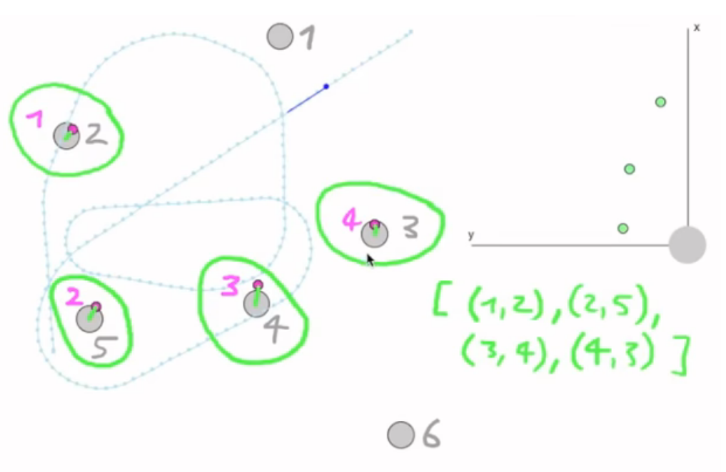 1
1 2
4 3
3
4
2
5
6
x
y
[ (1,2), (2,5),
(3,4), (4,3) ]